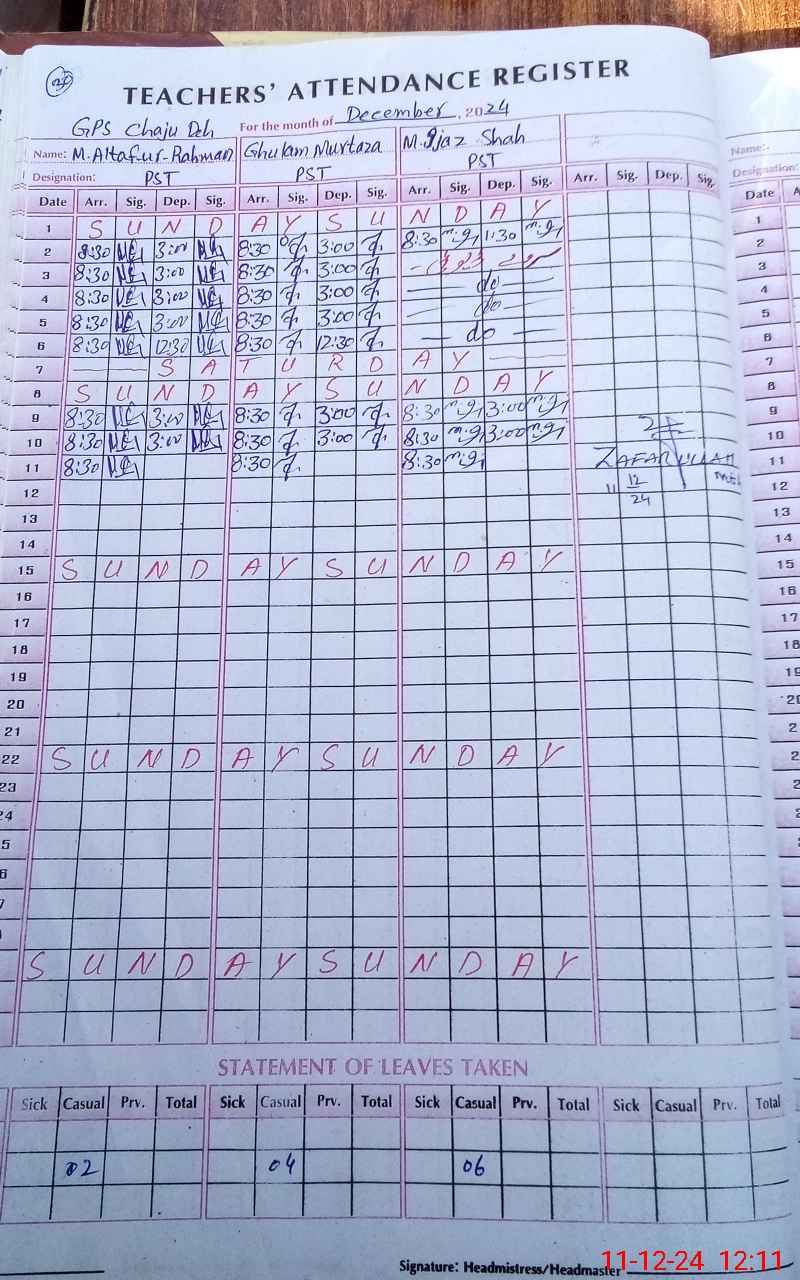 20
TEACHERS' ATTENDANCE REGISTER
GPS Chaju Deh For the month of December, 2024
Name: M.Altaf-ur-Rahman Ghulam Murtaza M.Ijaz Shah Name:-
Designation: PST PST PST Designation:
Date Arr. Sig. Dep. Sig. Arr. Sig. Dep. Sig. Arr. Sig. Dep. Sig. Arr. Sig. Dep. Sig. Date
1 S U N D A Y S U N D A Y 1
2 8:30 3:00 8:30 3:00 8:30 1:30 2
3 8:30 3:00 8:30 3:00 3
4 8:30 3:00 8:30 3:00 — do — 4
5 8:30 3:00 8:30 3:00 — do — 5
6 8:30 12:30 8:30 12:30 — do — 6
7 S A T U R D A Y 7
8 S U N D A Y S U N D A Y 8
9 8:30 3:00 8:30 3:00 8:30 3:00 9
10 8:30 3:00 8:30 3:00 8:30 3:00 10
11 8:30 8:30 8:30 ZAFARULLAH 11
12 11 12 24 12
13 13
14 14
15 S U N D A Y S U N D A Y 15
16 16
17 17
18 18
19
20
21
22 S U N D A Y S U N D A Y
23
24
S U N D A Y S U N D A Y
STATEMENT OF LEAVES TAKEN
Sick Casual Prv. Total Sick Casual Prv. Total Sick Casual Prv. Total Sick Casual Prv. Total
02 04 06
Signature: Headmistress/Headmaster
11-12-24 12:11